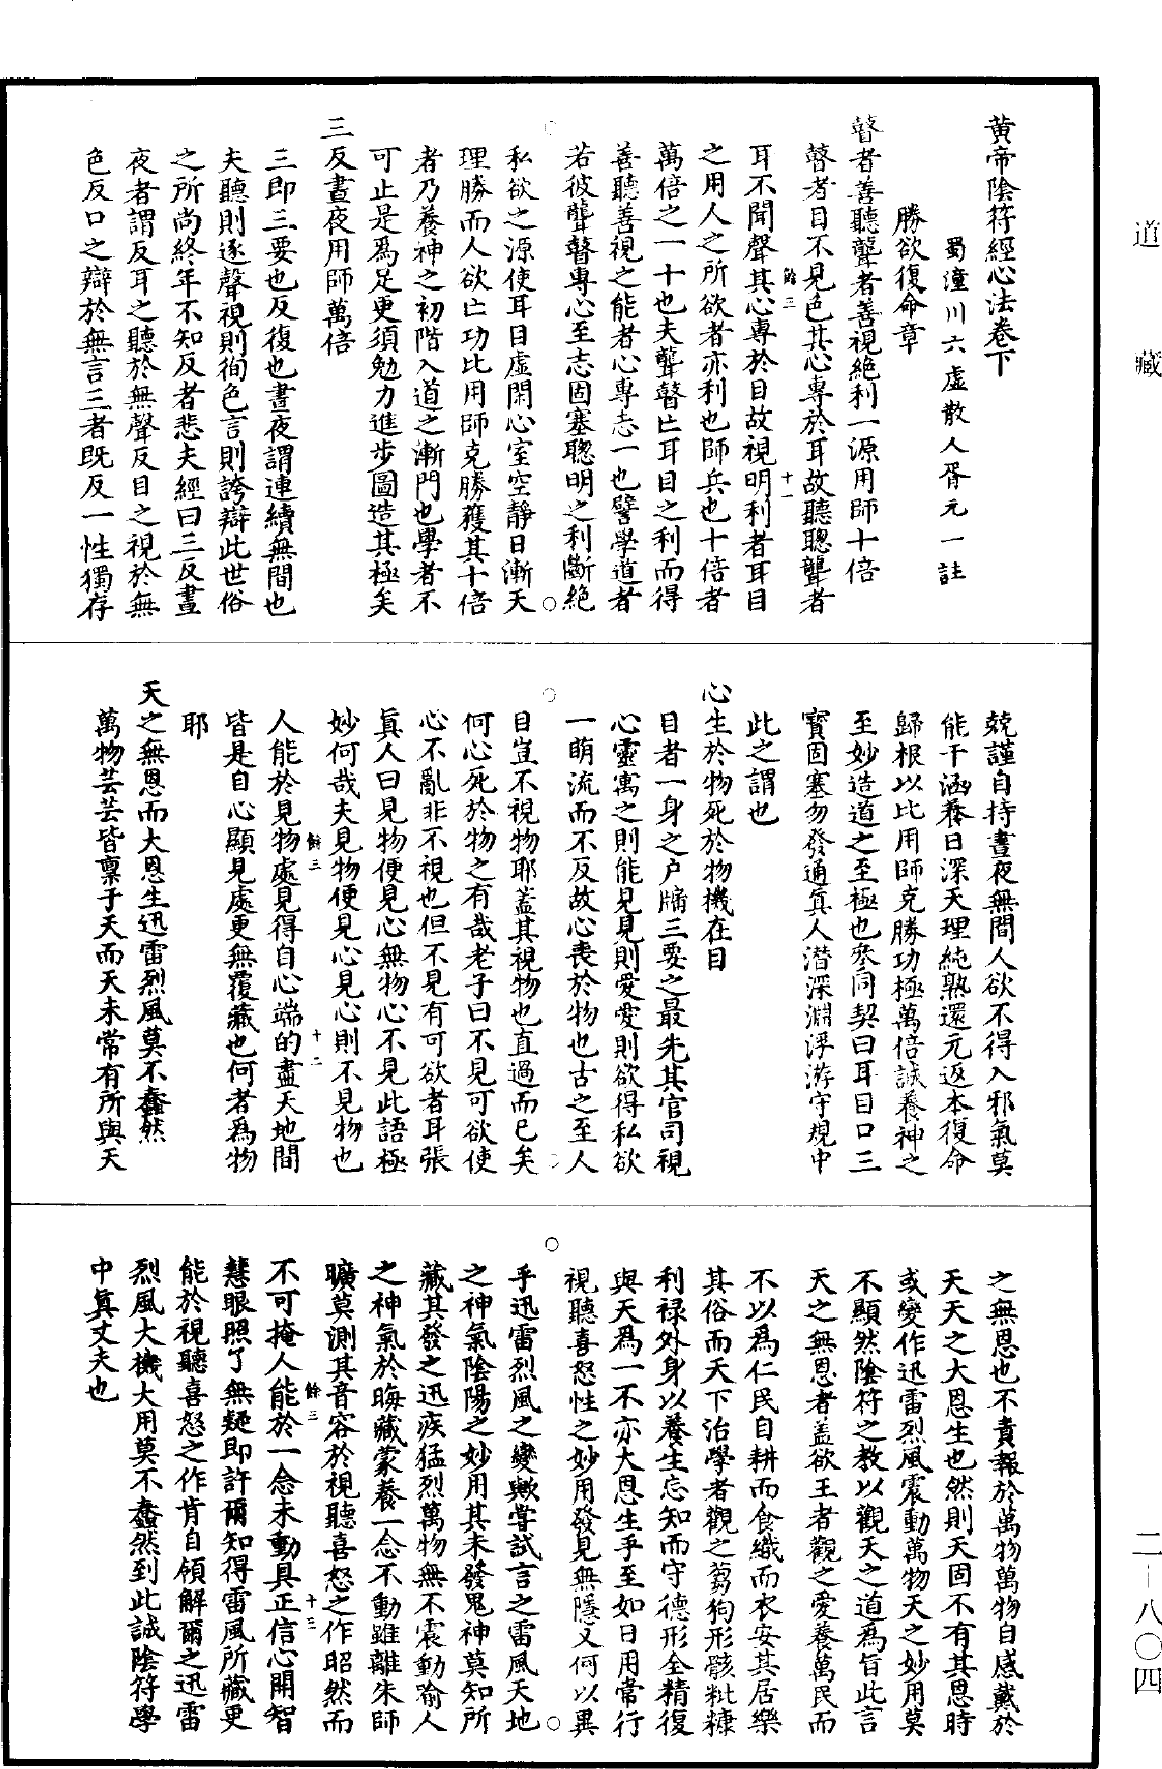 道藏
黃帝陰符經心法卷下
蜀潼川六虛散人胥元一註
勝欲復命章
瞽者善聽聾者善視絕利一源用師十倍
瞽者目不見色其心專於耳故聽聰聾者
耳不聞聲其心專於目故視明利者耳目
餘三
十一
之用人之所欲者亦利也師兵也十倍者
萬倍之一十也夫聾瞽亡耳目之利而得
善聽善視之能者心專志一也譬學道者
若彼聾瞽專心至志固塞聰明之利斷絕
私欲之源使耳目虛閑心室空靜日漸天
理勝而人欲亡功比用師克勝獲其十倍
者乃養神之初階入道之漸門也學者不
可止是為足更須勉力進步圖造其極矣
三反晝夜用師萬倍
三即三要也反復也晝夜謂連續無間也
夫聽則逐聲視則徇色言則誇辯此世俗
之所尚終年不知反者悲夫經曰三反晝
夜者謂反耳之聽於無聲反目之視於無
色反口之辯於無言三者既反一性獨存
兢謹自持晝夜無間人欲不得入邪氣莫
能干涵養日深天理純熟還元返本復命
歸根以比用師克勝功極萬倍誠養神之
至妙造道之至極也叅同契曰耳目口三
寶固塞勿發通真人潛深淵浮游守規中
此之謂也
心生於物死於物機在目
目者一身之户牖三要之最先其官司視
心靈寓之則能見見則愛愛則欲得私欲
一萌流而不反故心喪於物也古之至人
目豈不視物耶蓋其視物也直過而已矣
何心死於物之有哉老子曰不見可欲使
心不亂非不視也但不見有可欲者耳張
真人曰見物便見心無物心不見此語極
妙何哉夫見物便見心見心則不見物也
餘三
十二
人能於見物處見得自心端的盡天地間
皆是自心顯見處更無覆藏也何者為物
耶
天之無恩而大恩生迅雷烈風莫不蠢然
萬物芸芸皆稟于天而天未常有所與天
之無恩也不責報於萬物萬物自感戴於
天天之大恩生也然則天固不有其恩時
或變作迅雷烈風震動萬物天之妙用莫
不顯然陰符之教以觀天之道為旨此言
天之無恩者蓋欲王者觀之愛養萬民而
不以為仁民自耕而食織而衣安其居樂
其俗而天下治學者觀之芻狗形骸粃糠
利祿外身以養生忘知而守德形全精復
與天為一不亦大恩生乎至如日用常行
視聽喜怒性之妙用發見無隱又何以異
乎迅雷烈風之變歟嘗試言之雷風天地
之神氣陰陽之妙用其未發鬼神莫知所
藏其發之迅疾猛烈萬物無不震動喻人
之神氣於晦藏蒙養一念不動雖離朱師
曠莫測其音容於視聽喜怒之作昭然而
餘三
十三
不可掩人能於一念未動具正信心開智
慧眼照了無疑即許爾知得雷風所藏更
能於視聽喜怒之作肯自領解爾之迅雷
烈風大機大用莫不蠢然到此誠陰符學
中真丈夫也
二－八〇四